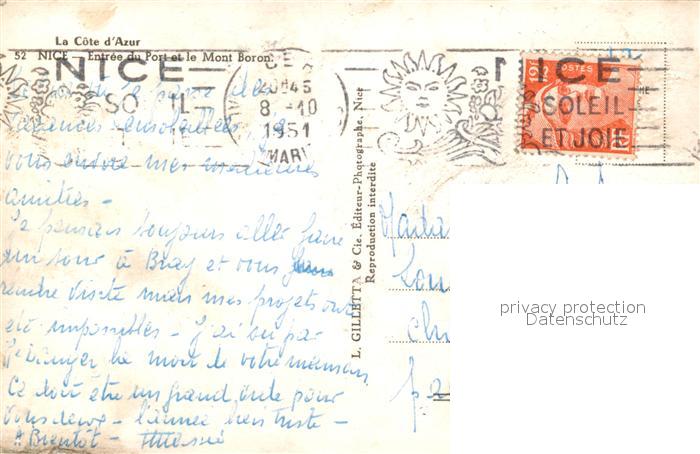 La Côte d'Azur
52 NICE — Entrée du Port et le Mont Boron.
NICE
SOLEIL
20H45
8-10
1951
NICE
SOLEIL
ET JOIE
POSTES
vacances ensoleillées
vous envoie mes meilleures
amitiés -
Je pensais toujours aller faire
un tour à Bray et vous
rendre visite mais mes projets ont
été impossibles - J'ai su par
la mort de votre maman
Ce doit être un grand vide pour
vous deux - l'année bien triste -
A Bientôt -
L. GILLETTA & Cie, Editeur-Photographe, Nice
Reproduction interdite
privacy protection
Datenschutz